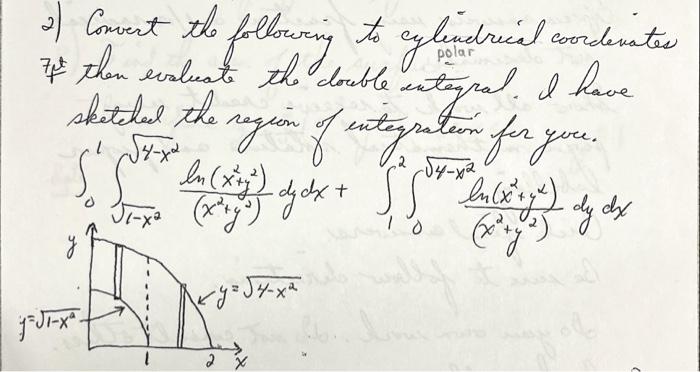 2) Convert the following to cylindrical coordinates
polar
7pt then evaluate the double integral. I have
sketched the region of integration for you.
∫₀¹ ∫_{√(1-x²)}^{√(4-x²)} ln(x²+y²)/(x²+y²) dy dx + ∫₁² ∫₀^{√(4-x²)} ln(x²+y²)/(x²+y²) dy dx
y
y=√(4-x²)
y=√(1-x²)
1 2 x